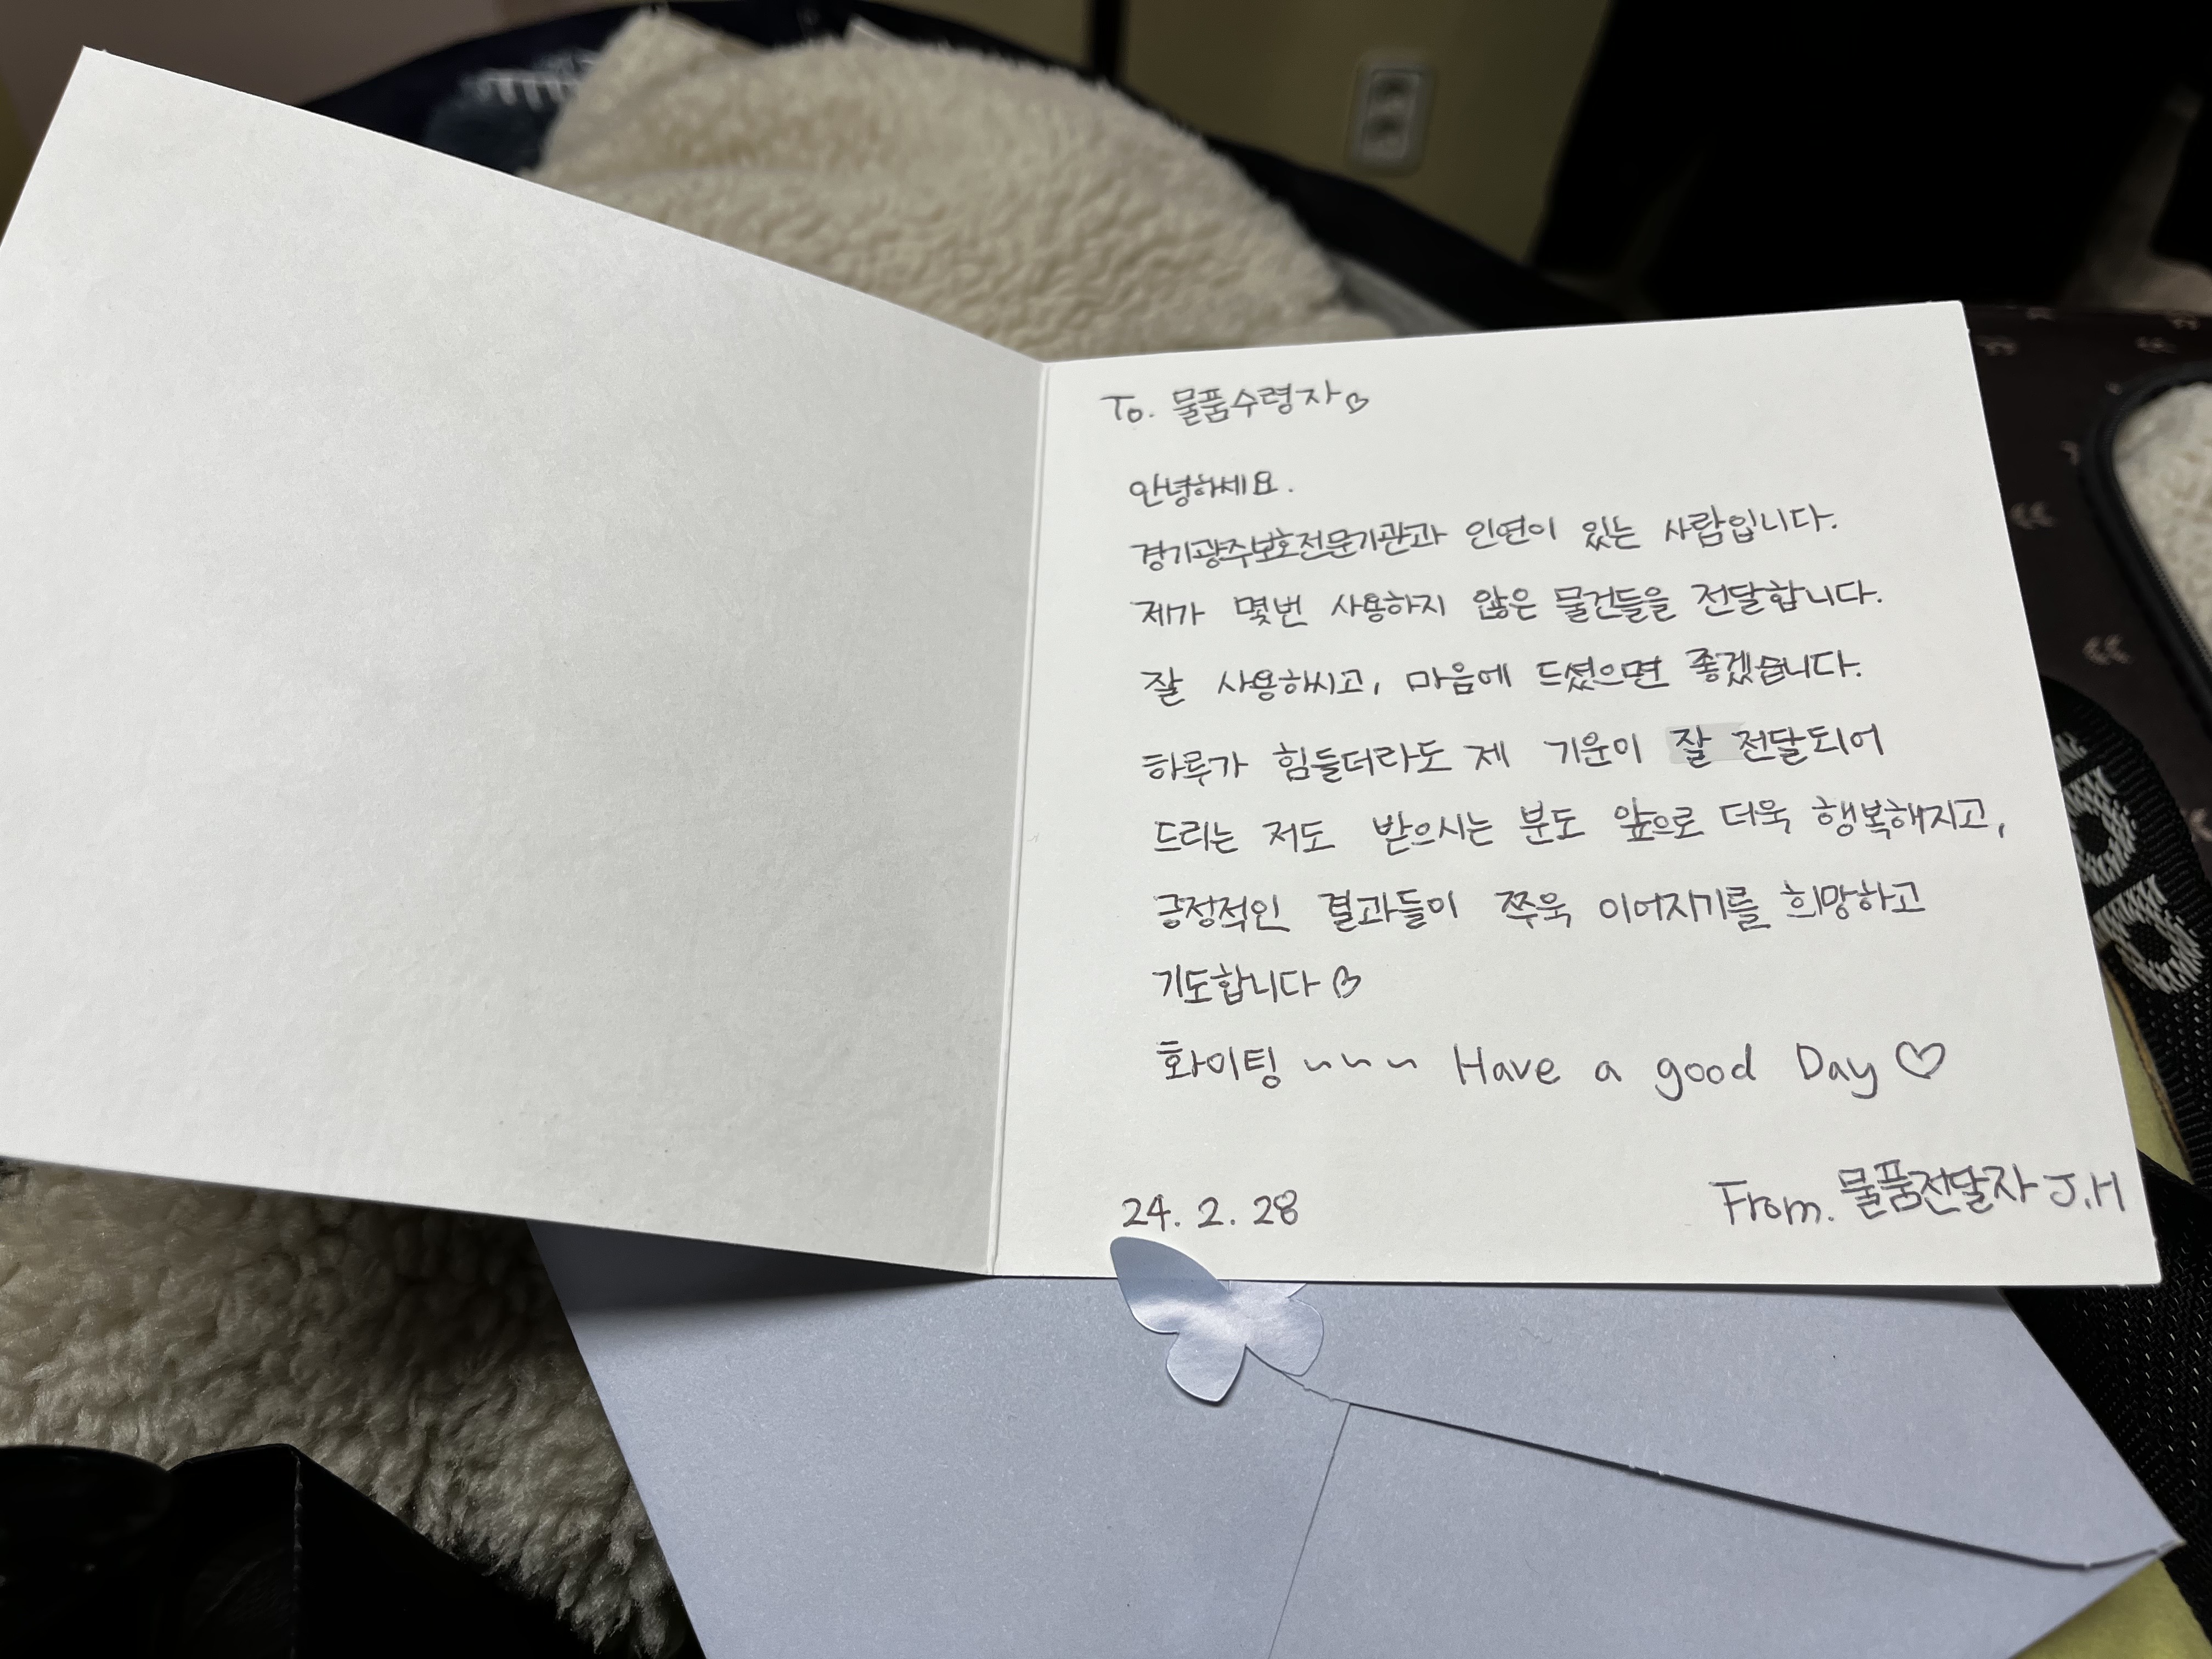 To. 물품수령자♡
안녕하세요.
경기광주보호전문기관과 인연이 있는 사람입니다.
제가 몇번 사용하지 않은 물건들을 전달합니다.
잘 사용하시고, 마음에 드셨으면 좋겠습니다.
하루가 힘들더라도 제 기운이 잘 전달되어
드리는 저도 받으시는 분도 앞으로 더욱 행복해지고,
긍정적인 결과들이 쭈욱 이어지기를 희망하고
기도합니다♡
화이팅 ~~~ Have a good Day♡
24. 2. 28
From. 물품전달자 J.H